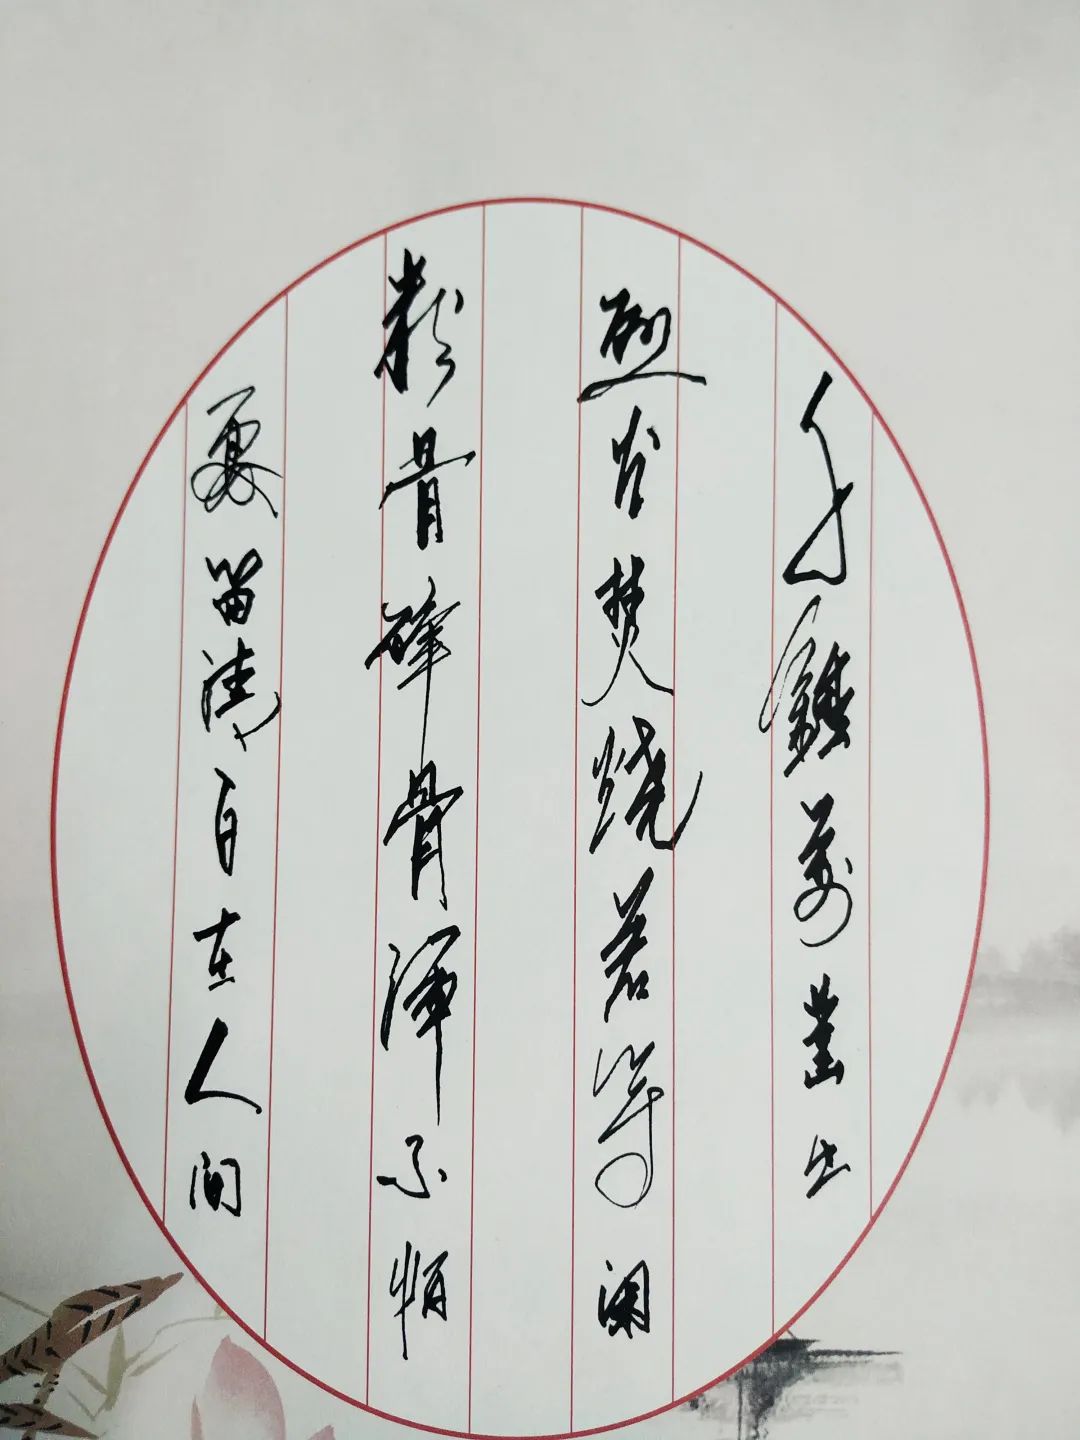 千錘萬凿出
烈火焚烧若等闲
粉骨碎骨浑不怕
要留清白在人间